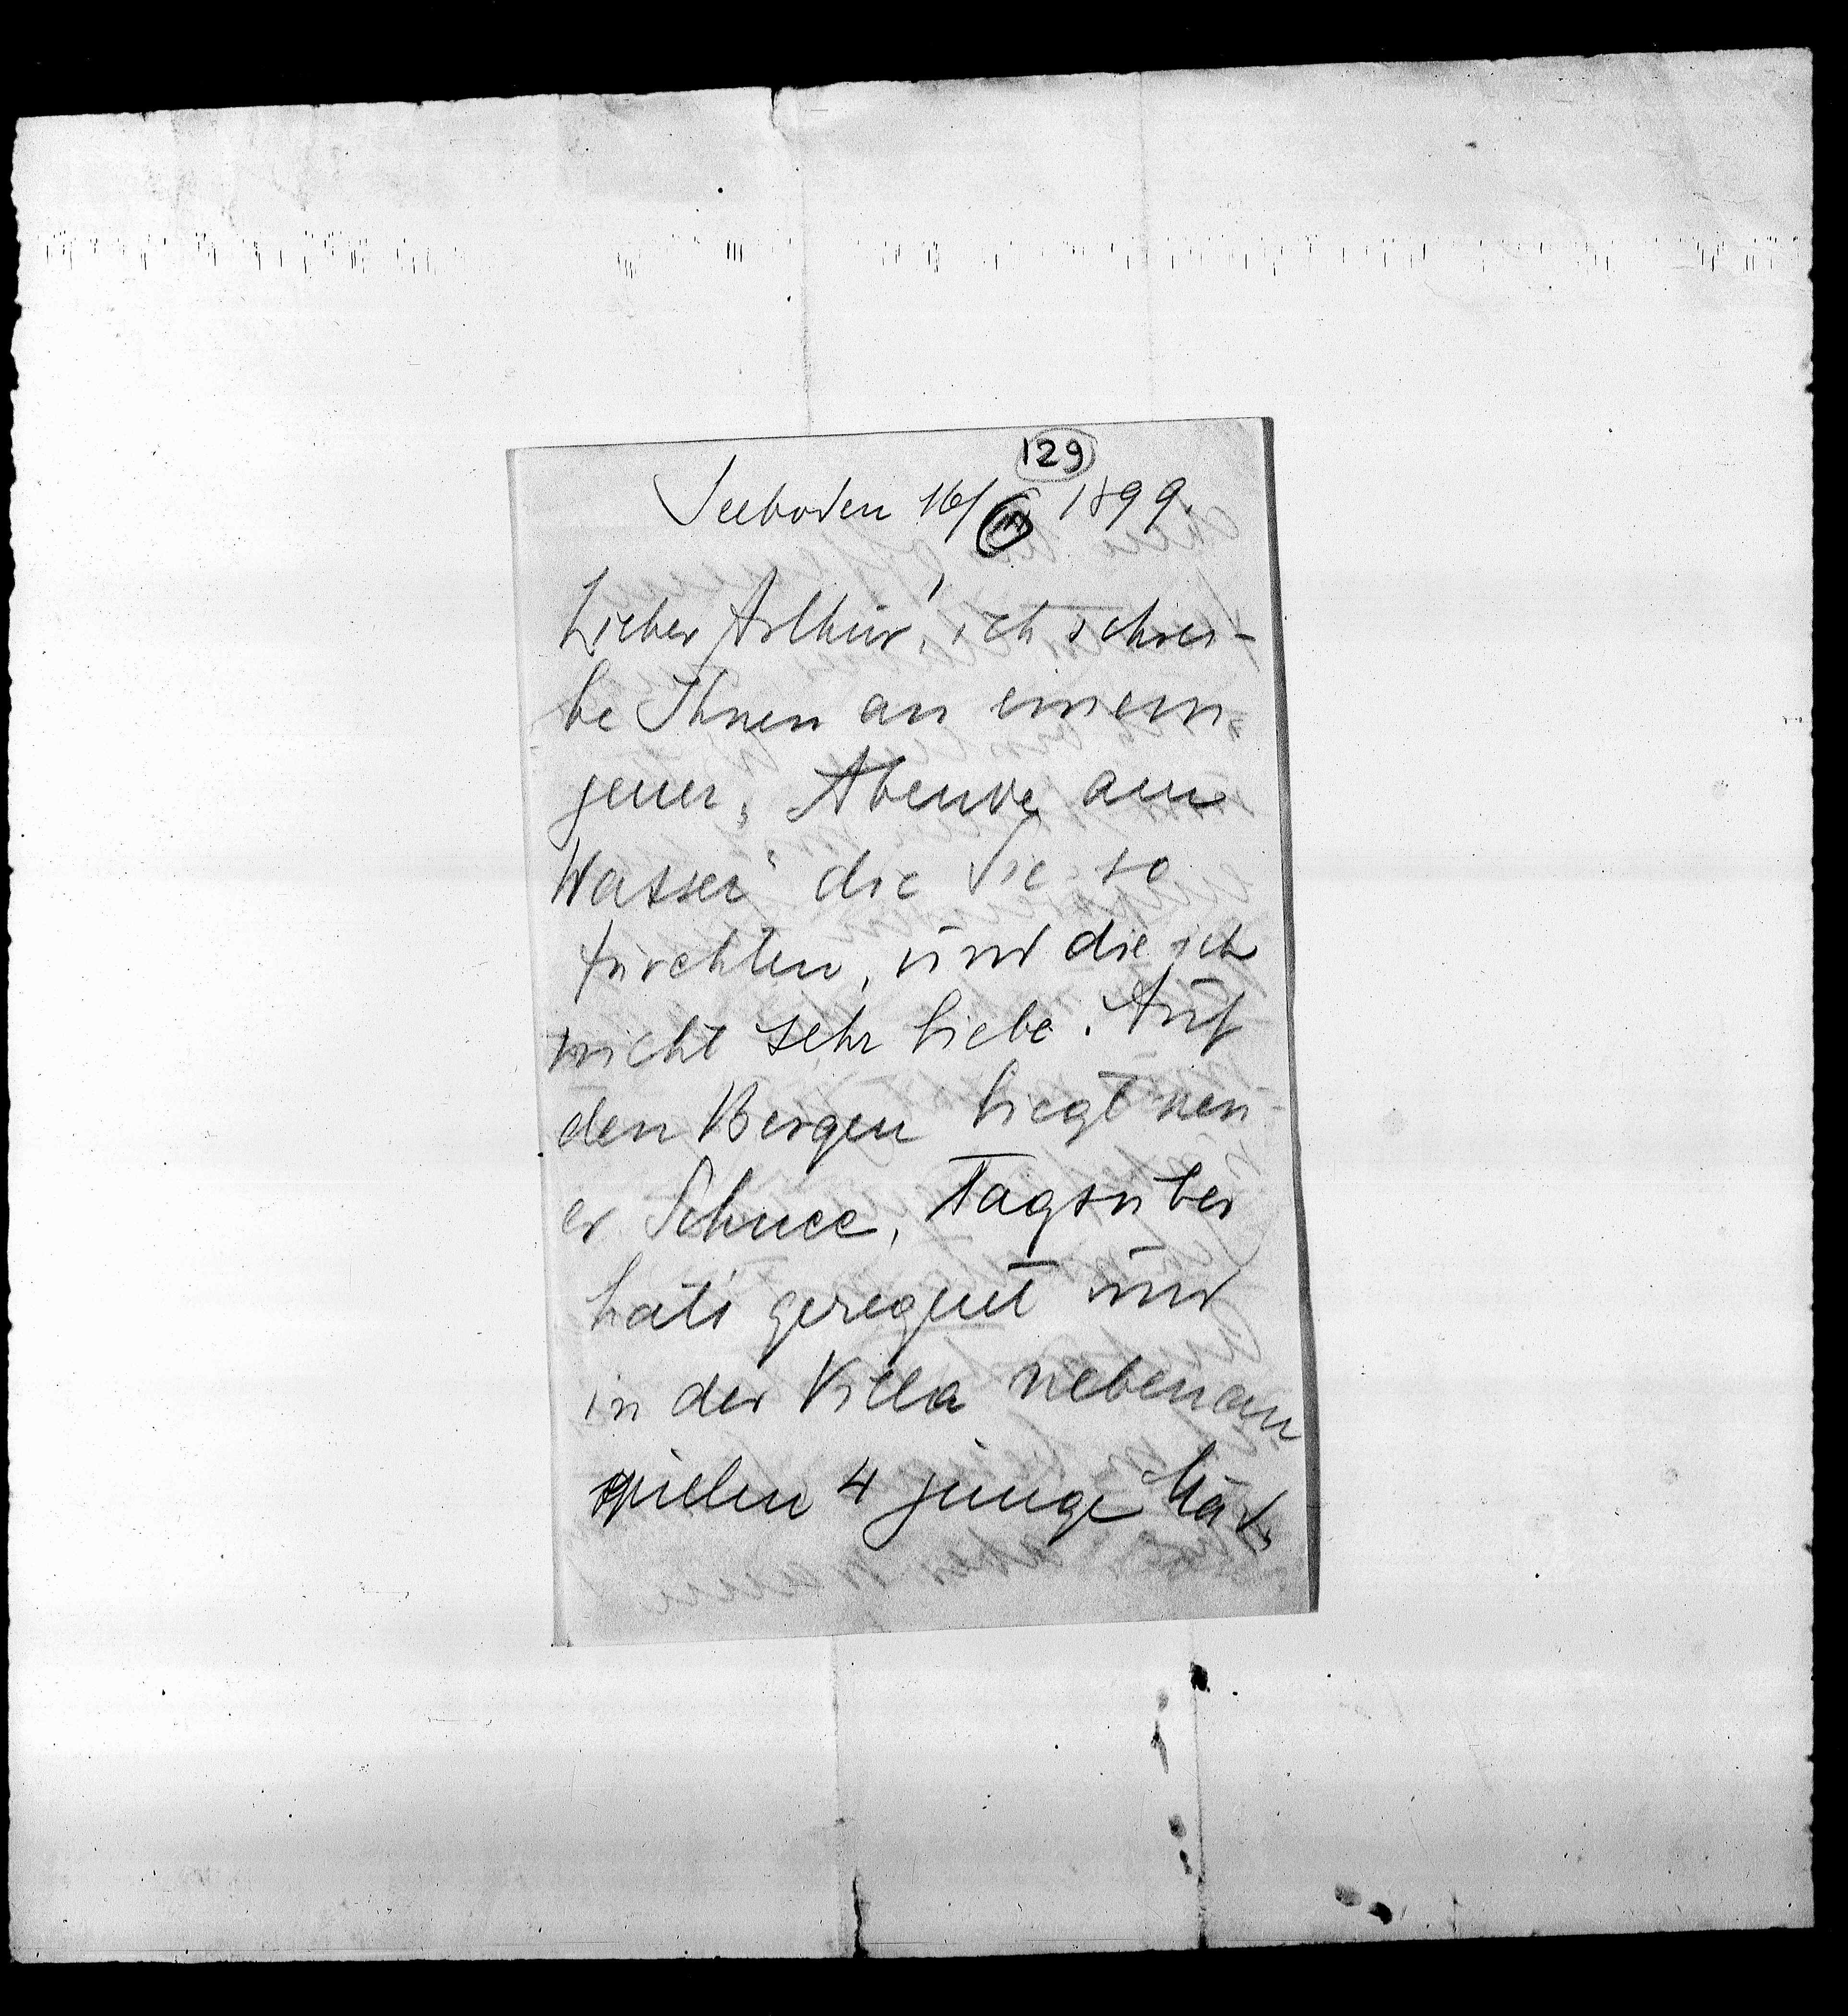 129
Seeboden 16/ 1899.
Lieber Arthur, ich schrei-
be Ihnen an einem
jener „Abende am
Wasser“ die Sie so
fürchten, und die ich
nicht sehr liebe. Auf
den Bergen liegt neu-
er Schnee, Tagsüber
hats geregnet und
in der Villa nebenan
spielen 4 junge